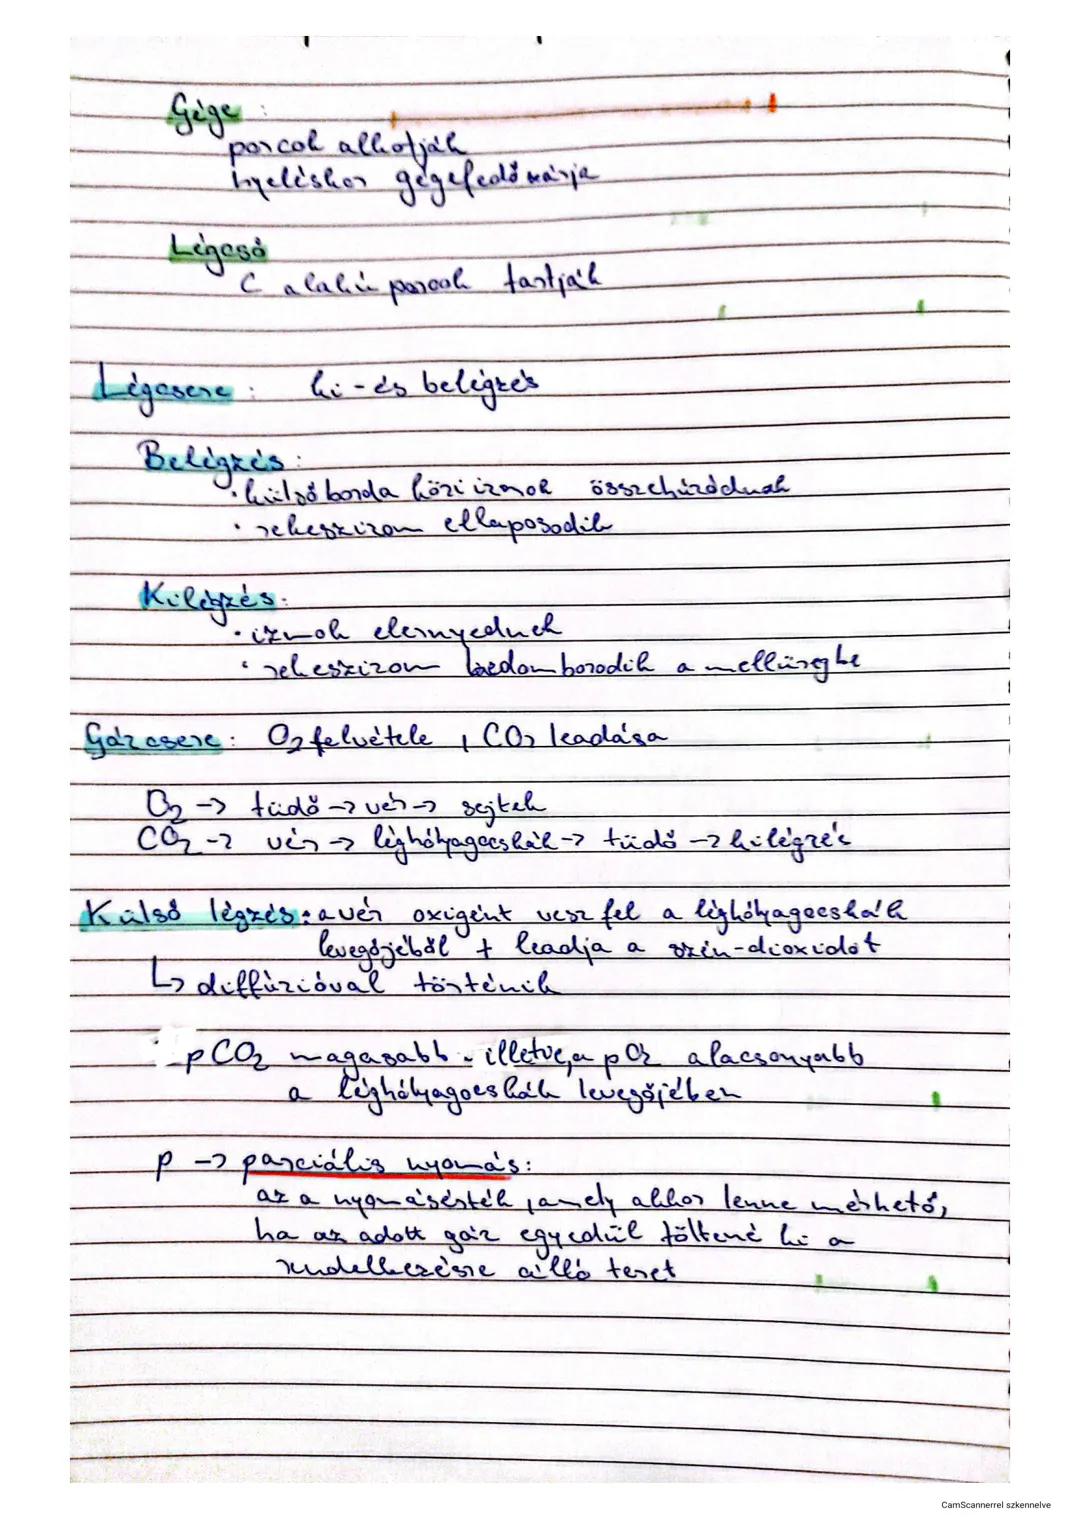 Gége :
porcok alkotják
nyeléskor gégefedő zárja
Légcső
C alakú porcok tartják
Légcsere : ki-és belégzés
Belégzés :
• külső borda közi izmok összehúzódnak
• rekeszizom ellaposodik
Kilégzés :
• izmok elernyednek
• rekeszizom bedomborodik a mellüregbe
Gázcsere : O2 felvétele , CO2 leadása
O2 → tüdő → vér → sejtek
CO2 → vér → léghólyagocskák → tüdő → kilégzés
Külső légzés : a vér oxigént vesz fel a léghólyagocskák
levegőjéből + leadja a szén-dioxidot
↳ diffúzióval történik
pCO2 magasabb - illetve, a pO2 alacsonyabb
a léghólyagocskák levegőjében
p → parciális nyomás :
az a nyomásérték , amely akkor lenne mérhető,
ha az adott gáz egyedül töltené ki a
rendelkezésre álló teret
CamScannerrel szkennelve